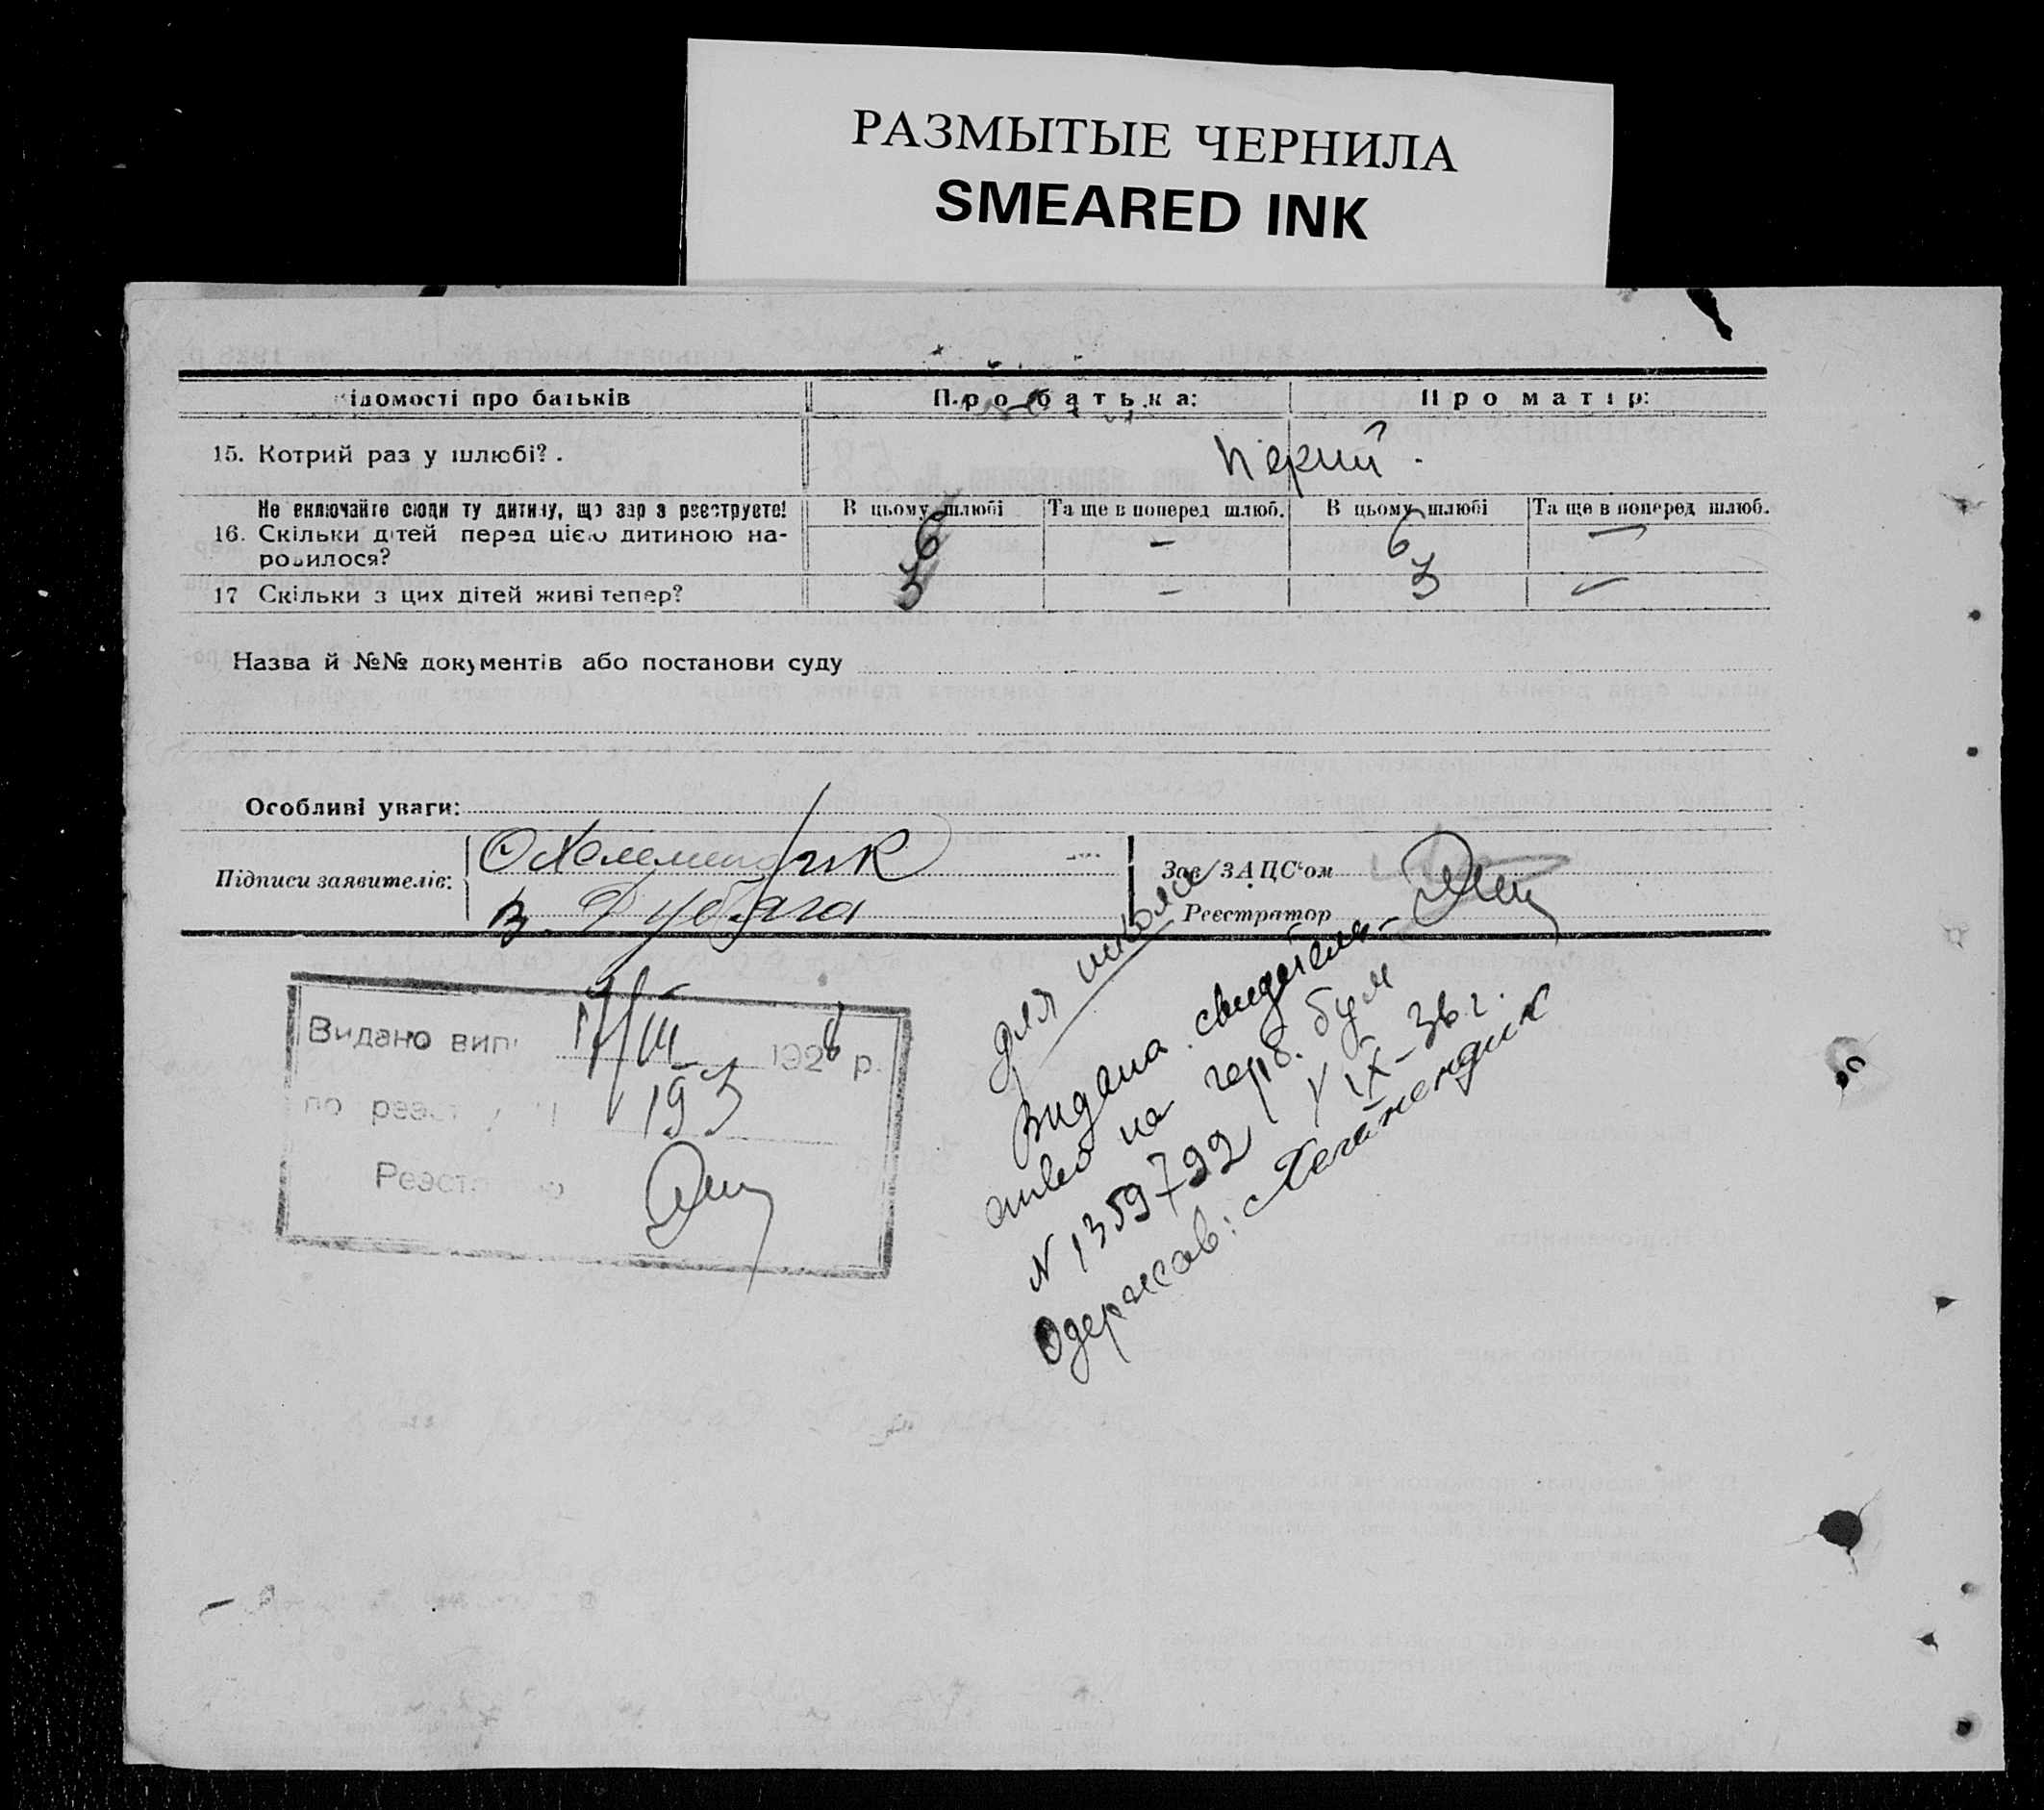 РАЗМЫТЫЕ ЧЕРНИЛА
SMEARED INK
ідомості про батьків Про батька: Про матір:
15. Котрий раз у шлюбі? . Перший .
Не включайте сюди ту дитину, що зараз реєструєте! В цьому шлюбі Та ще в поперед шлюб. В цьому шлюбі Та ще в поперед шлюб.
16. Скільки дітей перед цією дитиною на- 6 — 6 —
родилося?
17 Скільки з цих дітей живі тепер? 3 — 3 —
Назва й №№ документів або постанови суду
Особливі уваги:
Підписи заявителів:
Зав/ЗАЦС'ом
Реєстратор
Видано вип. 17/III 1928 р.
по реєстру 193
Реєстратор
для школи
Видана свидетель-
ство на герб. бум
N 1359792 IX-36 г.
Одержав: